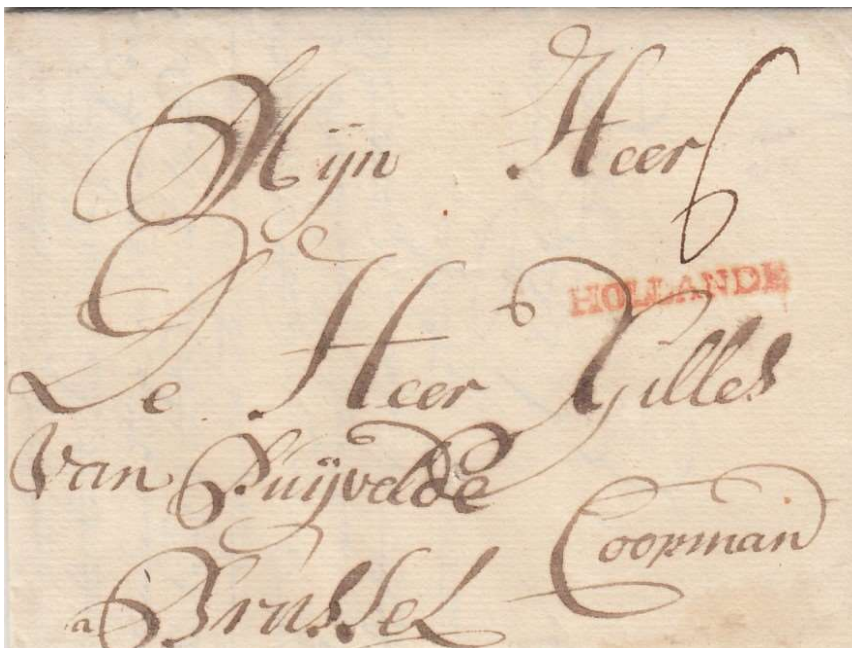 Mijn Heer 6
HOLLANDE
De Heer Gilles
van Puijvelde
Coopman
a Brussel